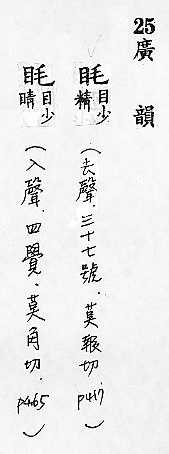 25廣韻
眊目少精(去聲.三十七號.莫報切.p417)
眊目少睛(入聲.四覺.莫角切.p465)